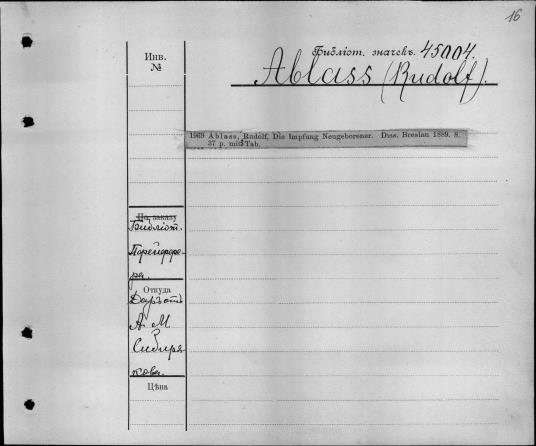 16
Инв.
№
Библіот. значекъ. 45004.
Ablass (Rudolf).
1969 Ablass, Rudolf, Die Impfung Neugeborener. Diss. Breslau 1889. 8.
37 p. mit 3 Tab.
По заказу
Библіот.
Откуда
Даръ отъ
А М
Сибиря-
кова.
Цѣна